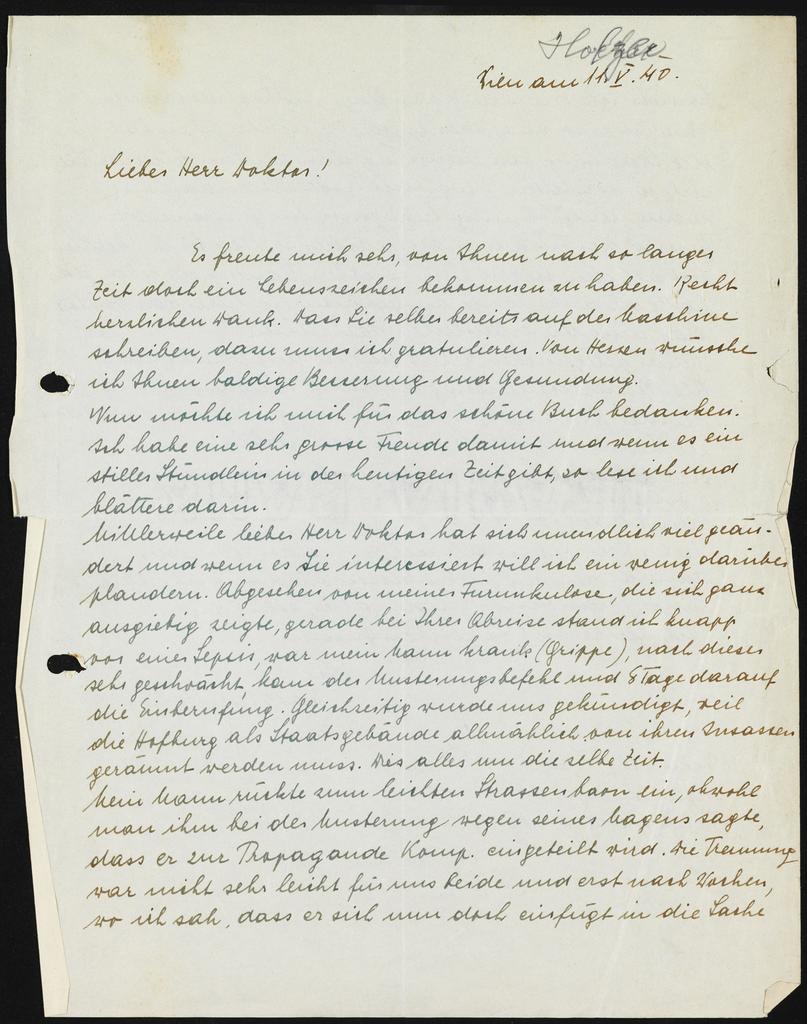 Holzer
Wien am 11.V.40.
Lieber Herr Doktor!
Es freute mich sehr, von Ihnen nach so langer
Zeit doch ein Lebenszeichen bekommen zu haben. Recht
herzlichen Dank. Dass Sie selber bereits auf der Maschine
schreiben, dazu muss ich gratulieren. Von Herzen wünsche
ich Ihnen baldige Besserung und Gesundung.
Nun möchte ich mich für das schöne Buch bedanken.
Ich habe eine sehr grosse Freude damit und wenn es ein
stilles Stündlein in der heutigen Zeit gibt, so lese ich und
blättere darin.
Mittlerweile lieber Herr Doktor hat sich unendlich viel geän-
dert und wenn es Sie interessiert will ich ein wenig darüber
plaudern. Abgesehen von meiner Furunkulose, die sich ganz
ausgiebig zeigte, gerade bei Ihrer Abreise stand ich knapp
vor einer Sepsis, war mein Mann krank (Grippe), nach dieser
sehr geschwächt, kam der Musterungsbefehl und 8 Tage darauf
die Einberufung. Gleichzeitig wurde uns gekündigt, weil
die Hofburg als Staatsgebäude allmählich von ihren Insassen
geräumt werden muss. Dies alles um die selbe Zeit.
Mein Mann rückte zum leichten Strassenbau ein, obwohl
man ihm bei der Musterung wegen seines Magens sagte,
dass er zur Propagande Komp. eingeteilt wird. Die Trennung
war nicht sehr leicht für uns beide und erst nach Wochen,
wo ich sah, dass er sich nun doch einfügt in die Sache